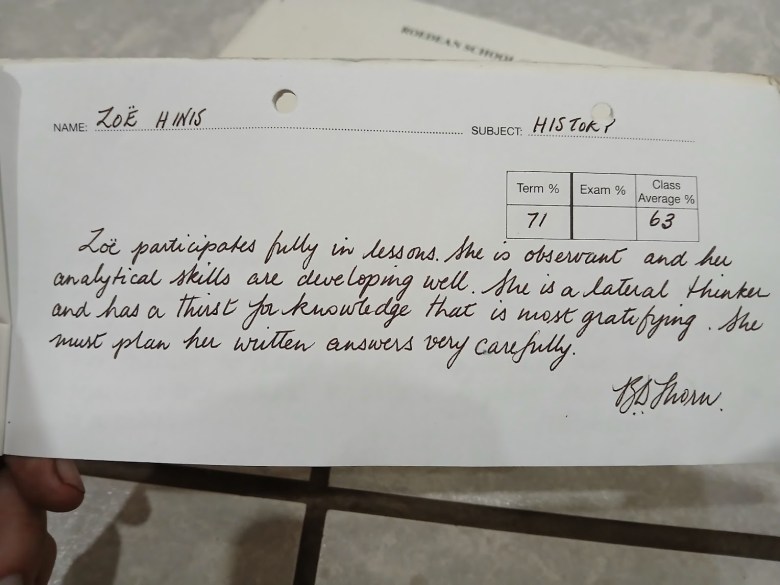 ROEDEAN SCHOOL
NAME: ZOË HINIS SUBJECT: HISTORY
Term % Exam % Class Average %
71 63
Zoë participates fully in lessons. She is observant and her
analytical skills are developing well. She is a lateral thinker
and has a thirst for knowledge that is most gratifying. She
must plan her written answers very carefully.
B.D. Thorn.